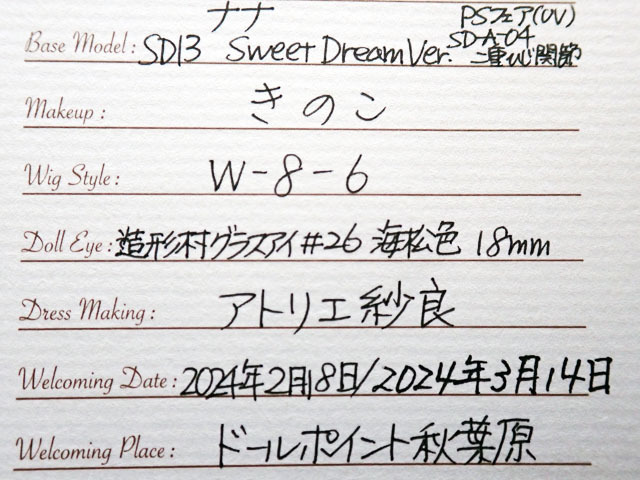 ナナ PSフェア(UV)
Base Model: SD13 Sweet Dream Ver. SD-A-04
二重ひじ関節
Makeup: きのこ
Wig Style: W-8-6
Doll Eye: 造形村グラスアイ#26 海松色 18mm
Dress Making: アトリエ紗良
Welcoming Date: 2024年2月8日/2024年3月14日
Welcoming Place: ドールポイント秋葉原